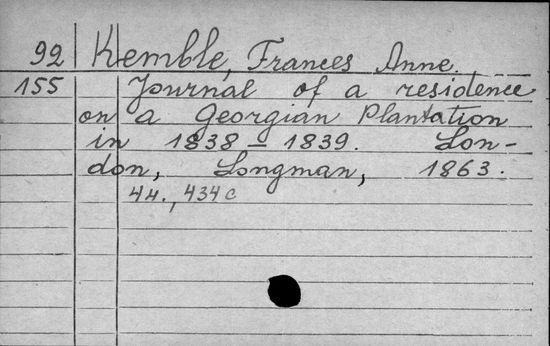 92 Kemble, Frances Anne.
155 Journal of a residence
on a Georgian Plantation
in 1838 – 1839. Lon-
don, Longman, 1863.
44., 434 c